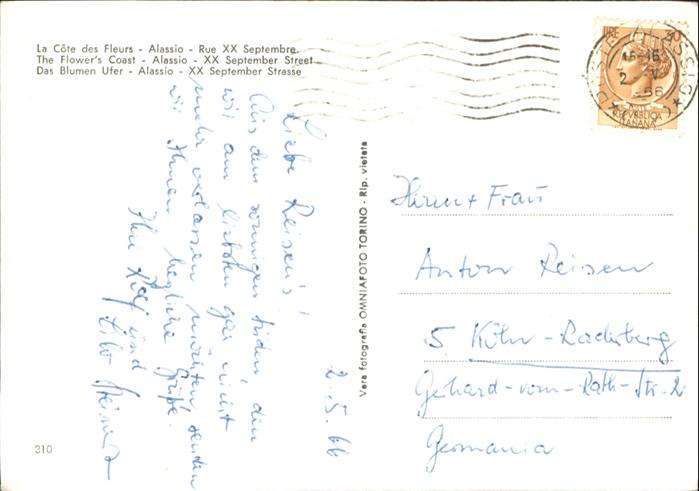 La Côte des Fleurs - Alassio - Rue XX Septembre
The Flower's Coast - Alassio - XX September Street
Das Blumen Ufer - Alassio - XX September Strasse
2.5.66
Liebe Reisen's!
Aus dem sonnigen Süden, den
wir am liebsten gar nicht
mehr verlassen möchten, senden
wir Ihnen herzliche Grüße.
Ihre
und
Vera fotografia OMNIAFOTO TORINO - Rip. vietata
LIRE 30
ALASSIO
REPVBBLICA
ITALIANA
Herrn + Frau
Anton Reisen
5 Köln-Raderberg
Gehard-vom-Rath-Str. 2
Germania
310